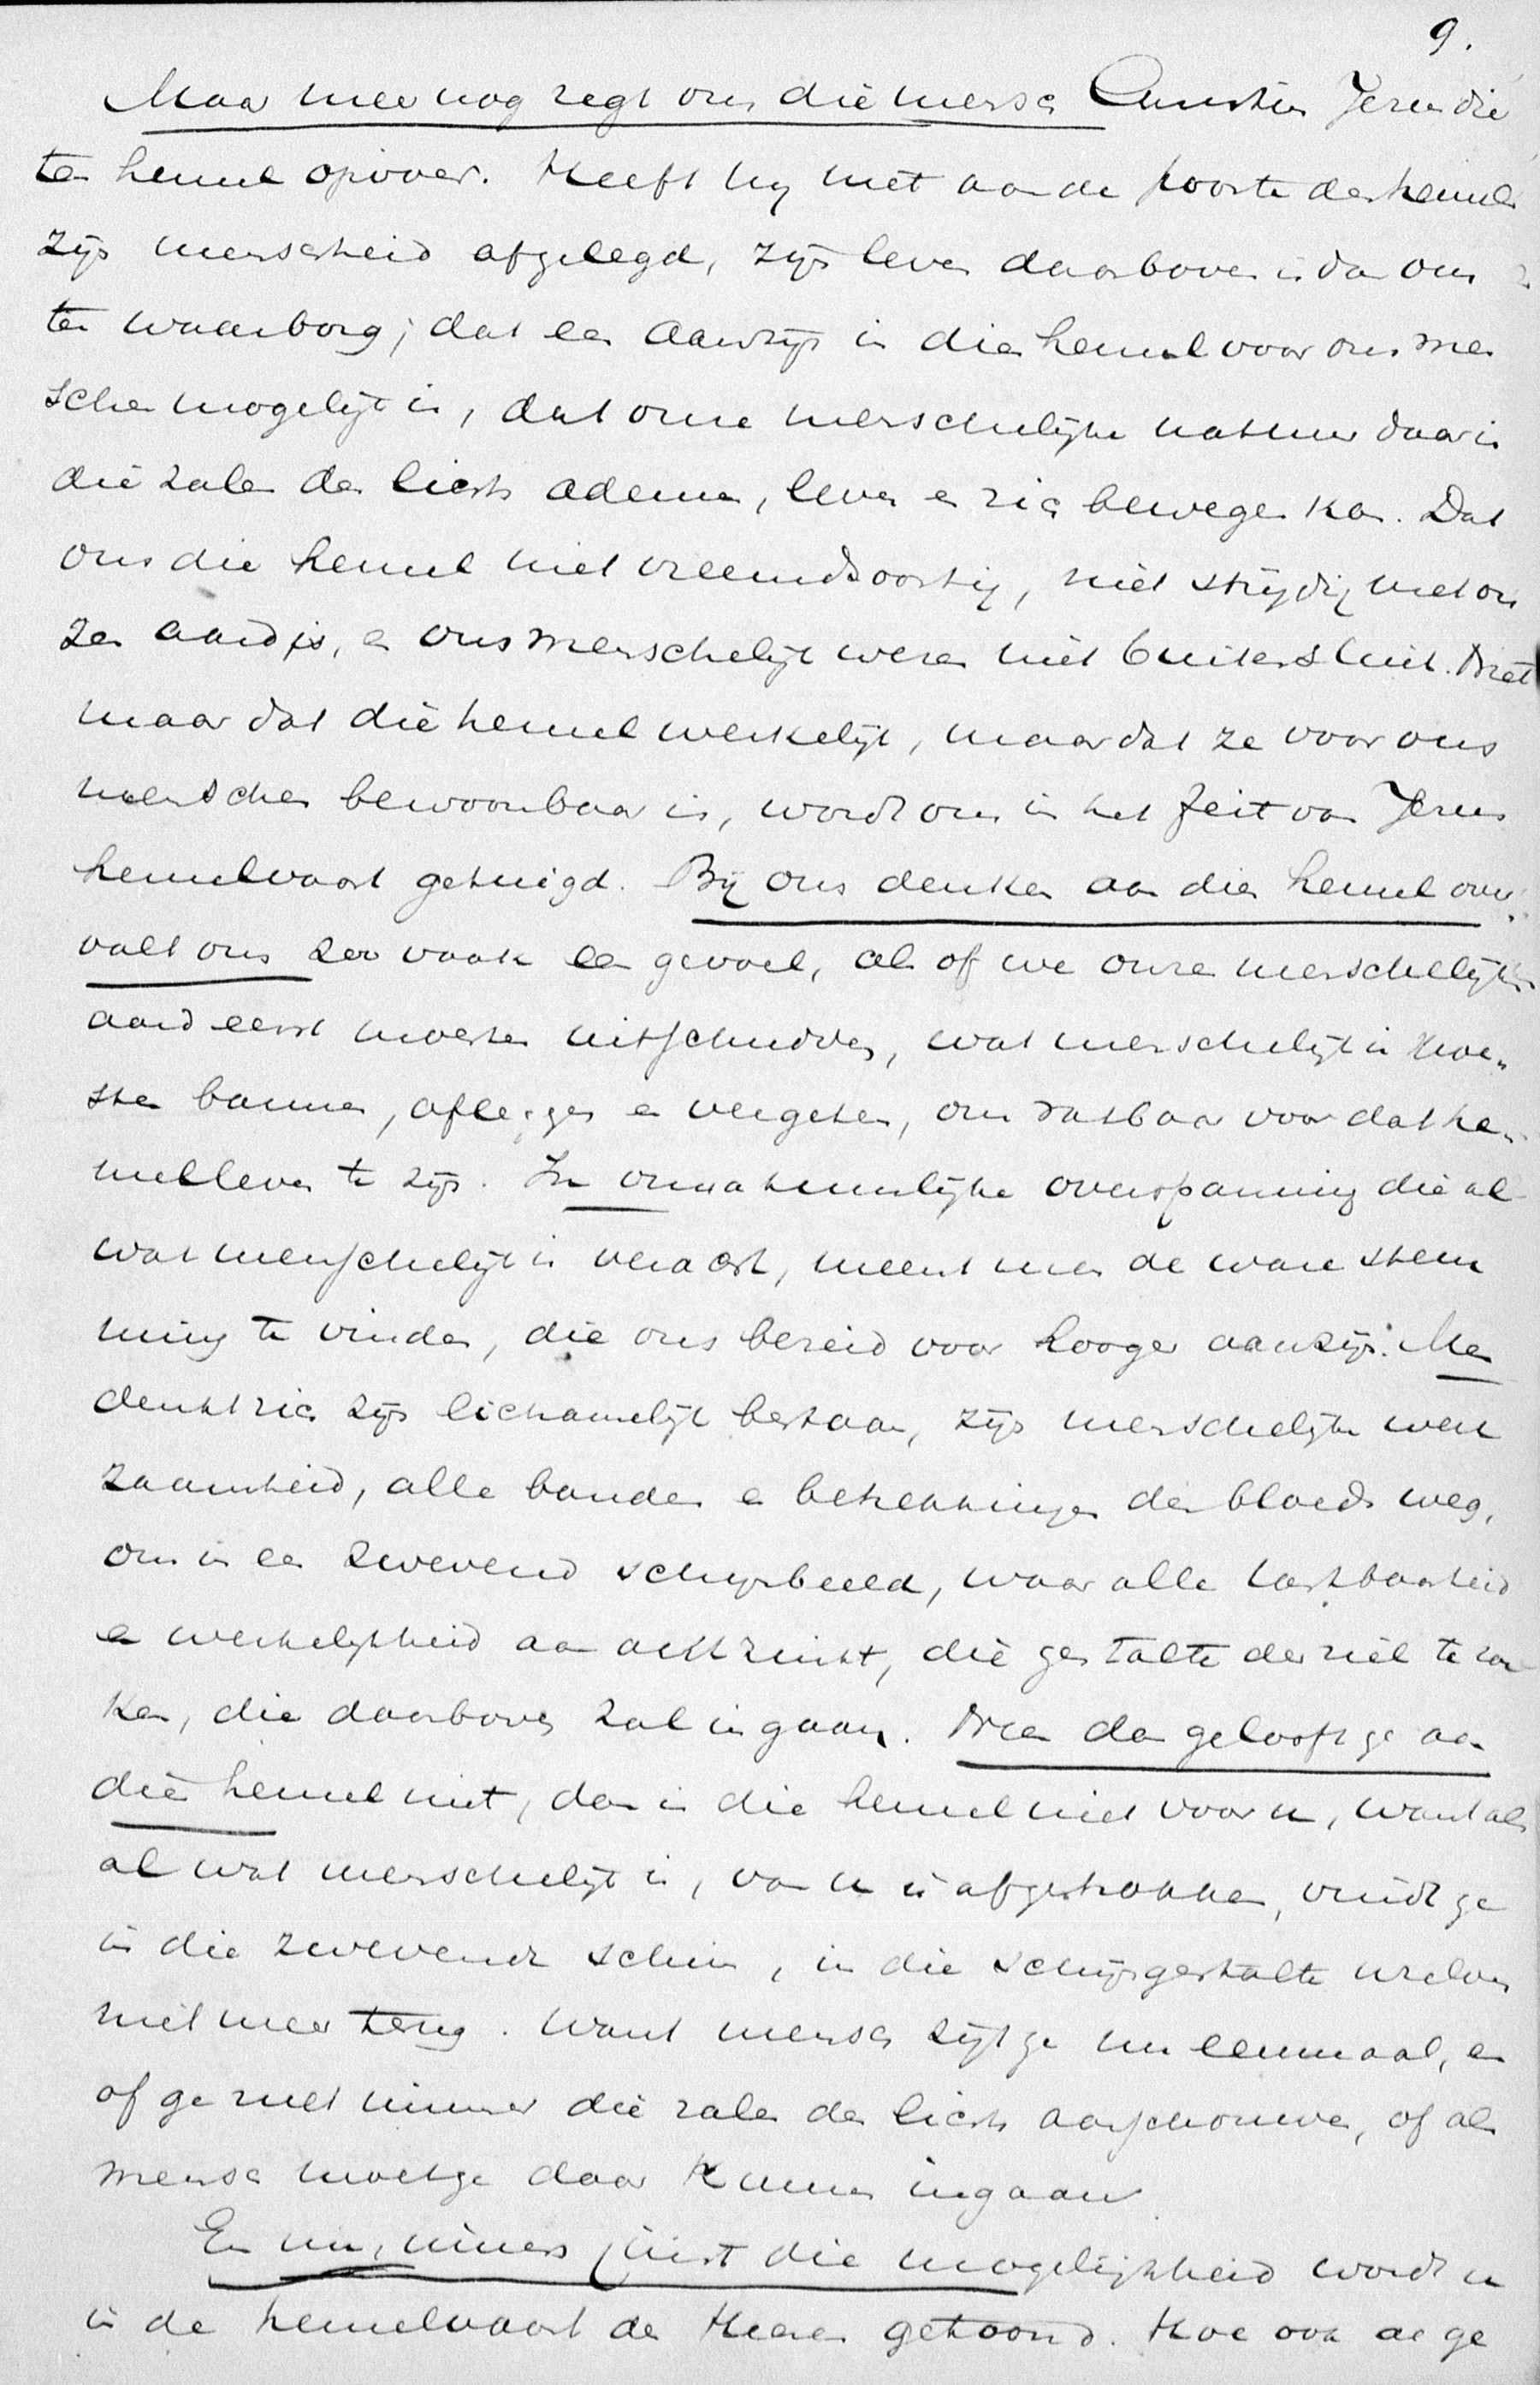 9.
Maar meer nog zegt ons die mensch Christus Jezus die
ten hemel opvoer. Heeft hij niet aan de poorte des hemels
zijn menschheid afgelegd, zijn leven daarboven is dan ons
ten waarborg, dat een aanzijn in dien hemel voor ons men
schen mogelijk is, dat onze menschelijke natuur daar in
die zalen des lichts ademen, leven en zich bewegen kan. Dat
ons die hemel niet vreemdsoortig, niet strijdig met on
zen aard is, en ons menschelijk wezen niet buitensluit. Niet
maar dat die hemel werkelijk, maar dat ze voor ons
menschen bewoonbaar is, wordt ons in het feit van Jezus
hemelvaart getuigd. Bij ons denken aan dien hemel over
valt ons zoo vaak een gevoel, als of we onze menschelijken
aard eerst moesten uitschudden, wat menschelijk is moe-
sten bannen, afleggen en vergeten, om vatbaar voor dat he-
melleven te zijn. In onnatuurlijke overspanning die al
wat menschelijk is veracht, meent men de ware stem
ming te vinden, die ons bereid voor hooger aanzijn. Men
denkt zich zijn lichamelijk bestaan, zijn menschelijke werk
zaamheid, alle banden en betrekkingen des bloeds weg,
om in een zwevend schijnbeeld, waar alle tastbaarheid
en werkelijkheid aan ontzinkt, die gestalte der ziel te zoe
ken, die daarboven zal ingaan. Neen dan gelooft ge aan
dien hemel niet, dan is die hemel niet voor u, want als
al wat menschelijk is, van u is afgetrokken, vindt ge
in die zwevende schim, in die schijngestalte uzelven
niet meer terug. Want mensch zijt ge nu eenmaal, en
of ge zult nimmer die zalen des lichts aanschouwen, of als
mensch moet ge daar kunnen ingaan
En nu, immers juist die mogelijkheid wordt u
in de hemelvaart des Heeren getoond. Hoe ook de ge